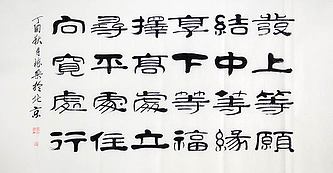 發上等願
結中等緣
享下等福
擇高處立
尋平處住
向寬處行
丁酉秋月振興於北京